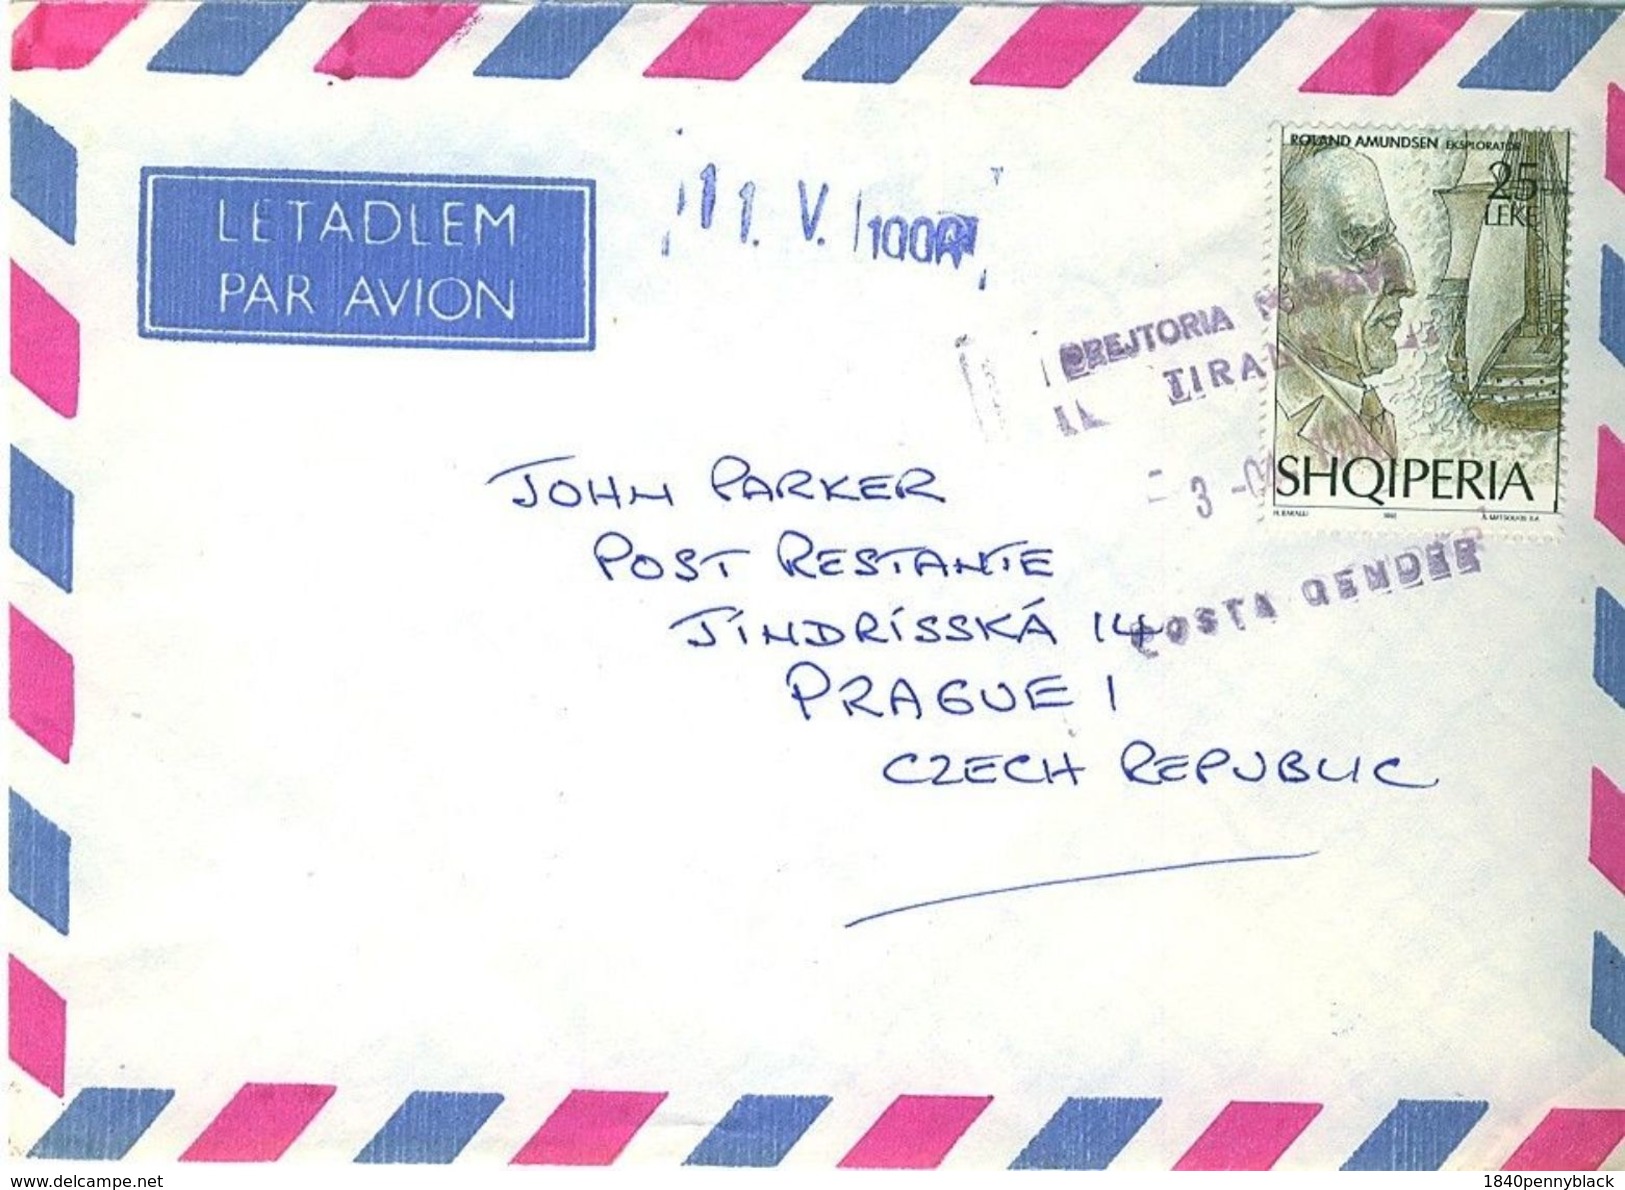 LETADLEM
PAR AVION
11. V.
ROLAND AMUNDSEN EKSPLORATOR
25
LEKE
DREJTORIA
TIRANE
3
SHQIPERIA
POSTA QENDER
JOHN PARKER
POST RESTANTE
JÍNDRÍSSKÁ 14
PRAGUE 1
CZECH REPUBLIC
www.delcampe.net
1840pennyblack